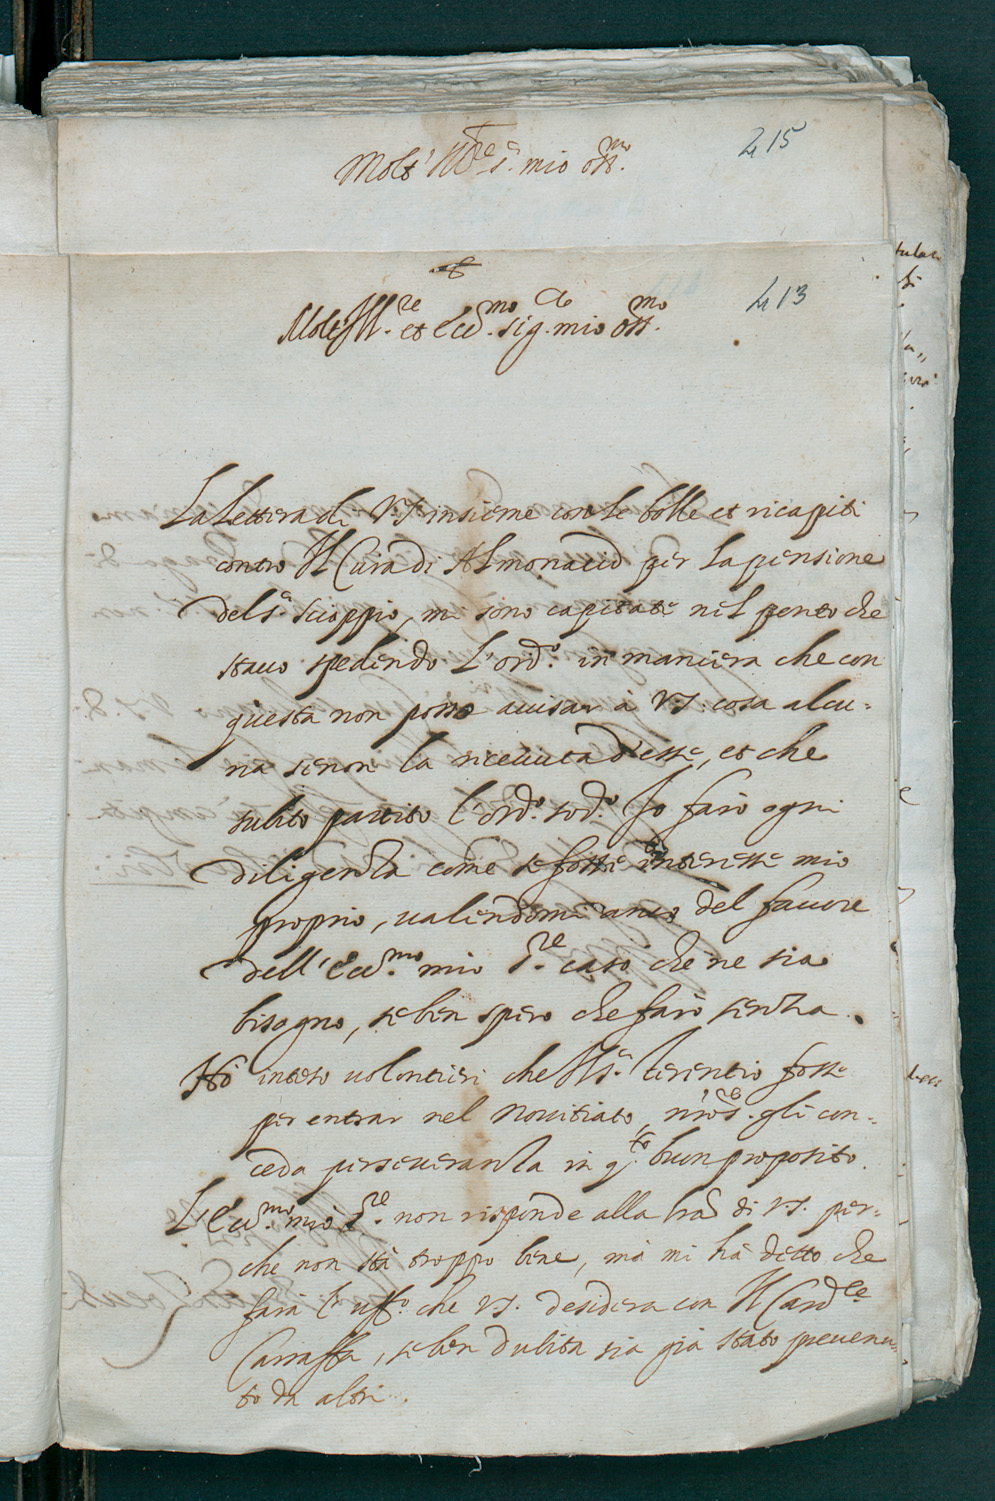 415
Molt' Ill.re s.r mio oss.mo
413
Molt Ill.re et Ecc.mo sig.r mio oss.mo
La lettera di V.S. insieme con le bolle et ricapiti
contro Il Cura di Almonacid per la pensione
del s.r Scioppio, mi sono capitati nel pento che
stauo spedendo l'ord.o in maniera che con
questa non posso auisar à V.S. cosa alcu-
na senon la riceuuta d'esse, et che
subito partito l'ord.o sod.o Jo farò ogni
diligenza come se fosse interesse mio
proprio, ualendomi anco del fauore
dell'Ecc.mo mio S.re caso che ne sia
bisogno, se ben spero che farò senza.
Hò inteso uolontieri che Il s.r Terentio fosse
per entrar nel Nouitiato, nro s.r gli con-
ceda perseueranza in q.to buon proposito.
L'Ecc.mo mio S.re non risponde alla lra di V.S. per-
che non stà troppo bene, mà mi hà detto che
farà l'uff.o che V.S. desidera con Il Card.le
Carraffa, se ben dubita sia già stato preuenu-
to da altri.